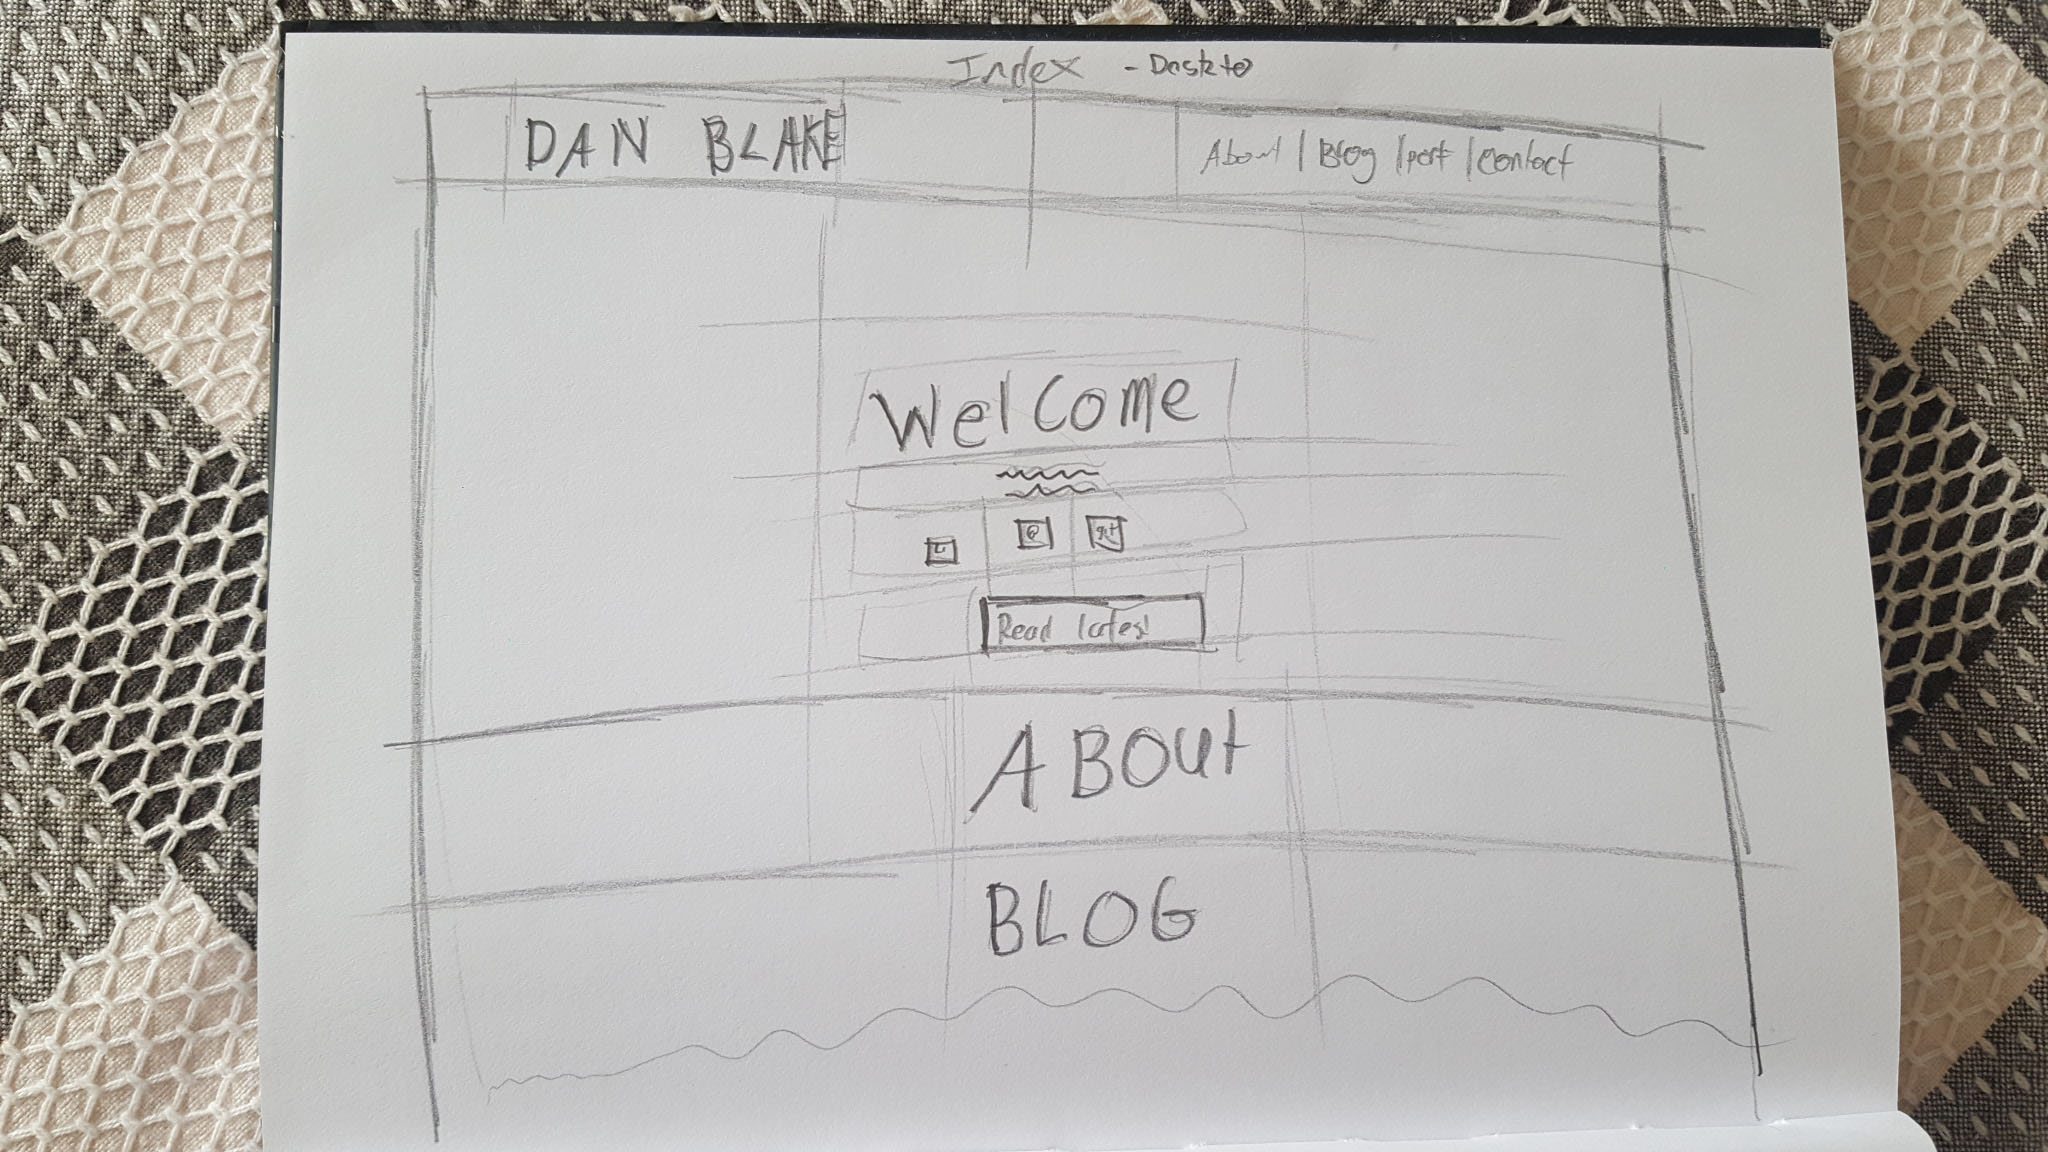 Index - Deskto
DAN BLAKE
About | Blog | port | contact
Welcome
Read latest
ABOUt
BLOG